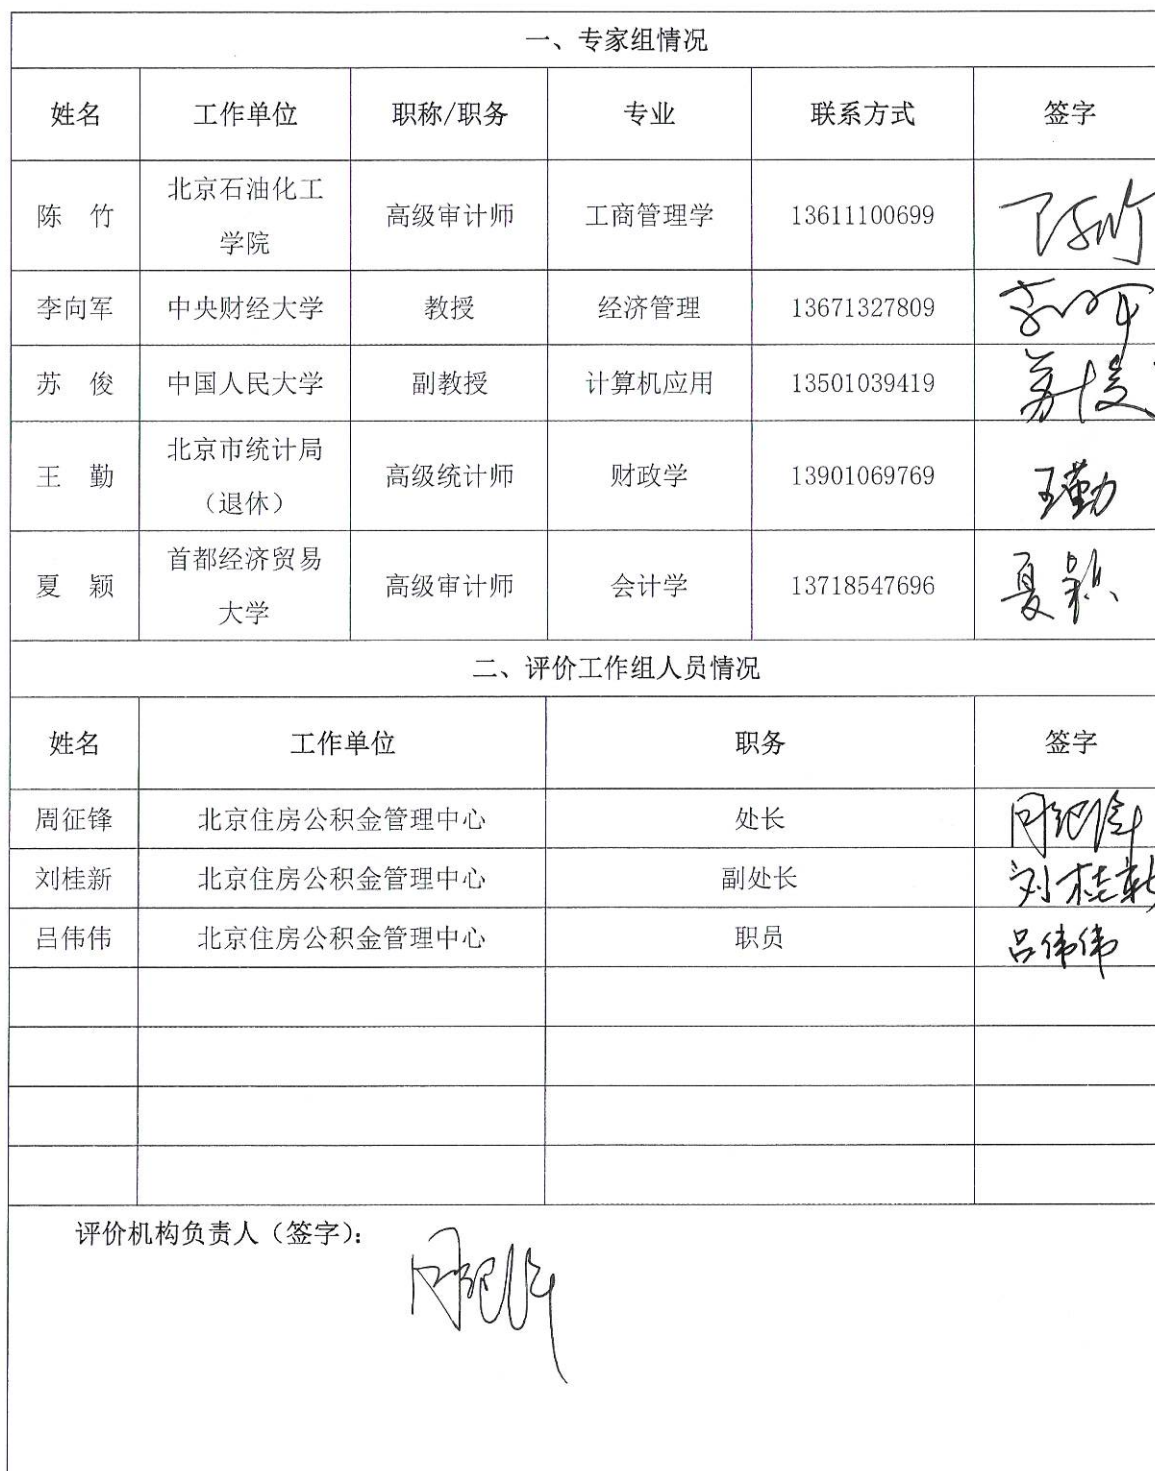 一、专家组情况
姓名 工作单位 职称/职务 专业 联系方式 签字
陈 竹 北京石油化工学院 高级审计师 工商管理学 13611100699 陈竹
李向军 中央财经大学 教授 经济管理 13671327809 李向军
苏 俊 中国人民大学 副教授 计算机应用 13501039419 苏俊
王 勤 北京市统计局（退休） 高级统计师 财政学 13901069769 王勤
夏 颖 首都经济贸易大学 高级审计师 会计学 13718547696 夏颖
二、评价工作组人员情况
姓名 工作单位 职务 签字
周征锋 北京住房公积金管理中心 处长
刘桂新 北京住房公积金管理中心 副处长 刘桂新
吕伟伟 北京住房公积金管理中心 职员 吕伟伟
评价机构负责人（签字）：